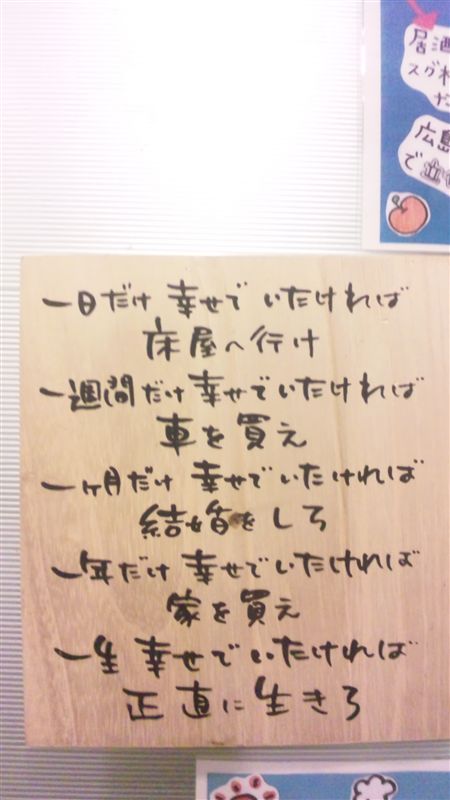 居酒
スグ
広島
で
一日だけ 幸せで いたければ
床屋へ行け
一週間だけ幸せでいたければ
車を買え
一ヶ月だけ 幸せでいたければ
結婚をしろ
一年だけ 幸せでいたければ
家を買え
一生 幸せでいたければ
正直に生きろ